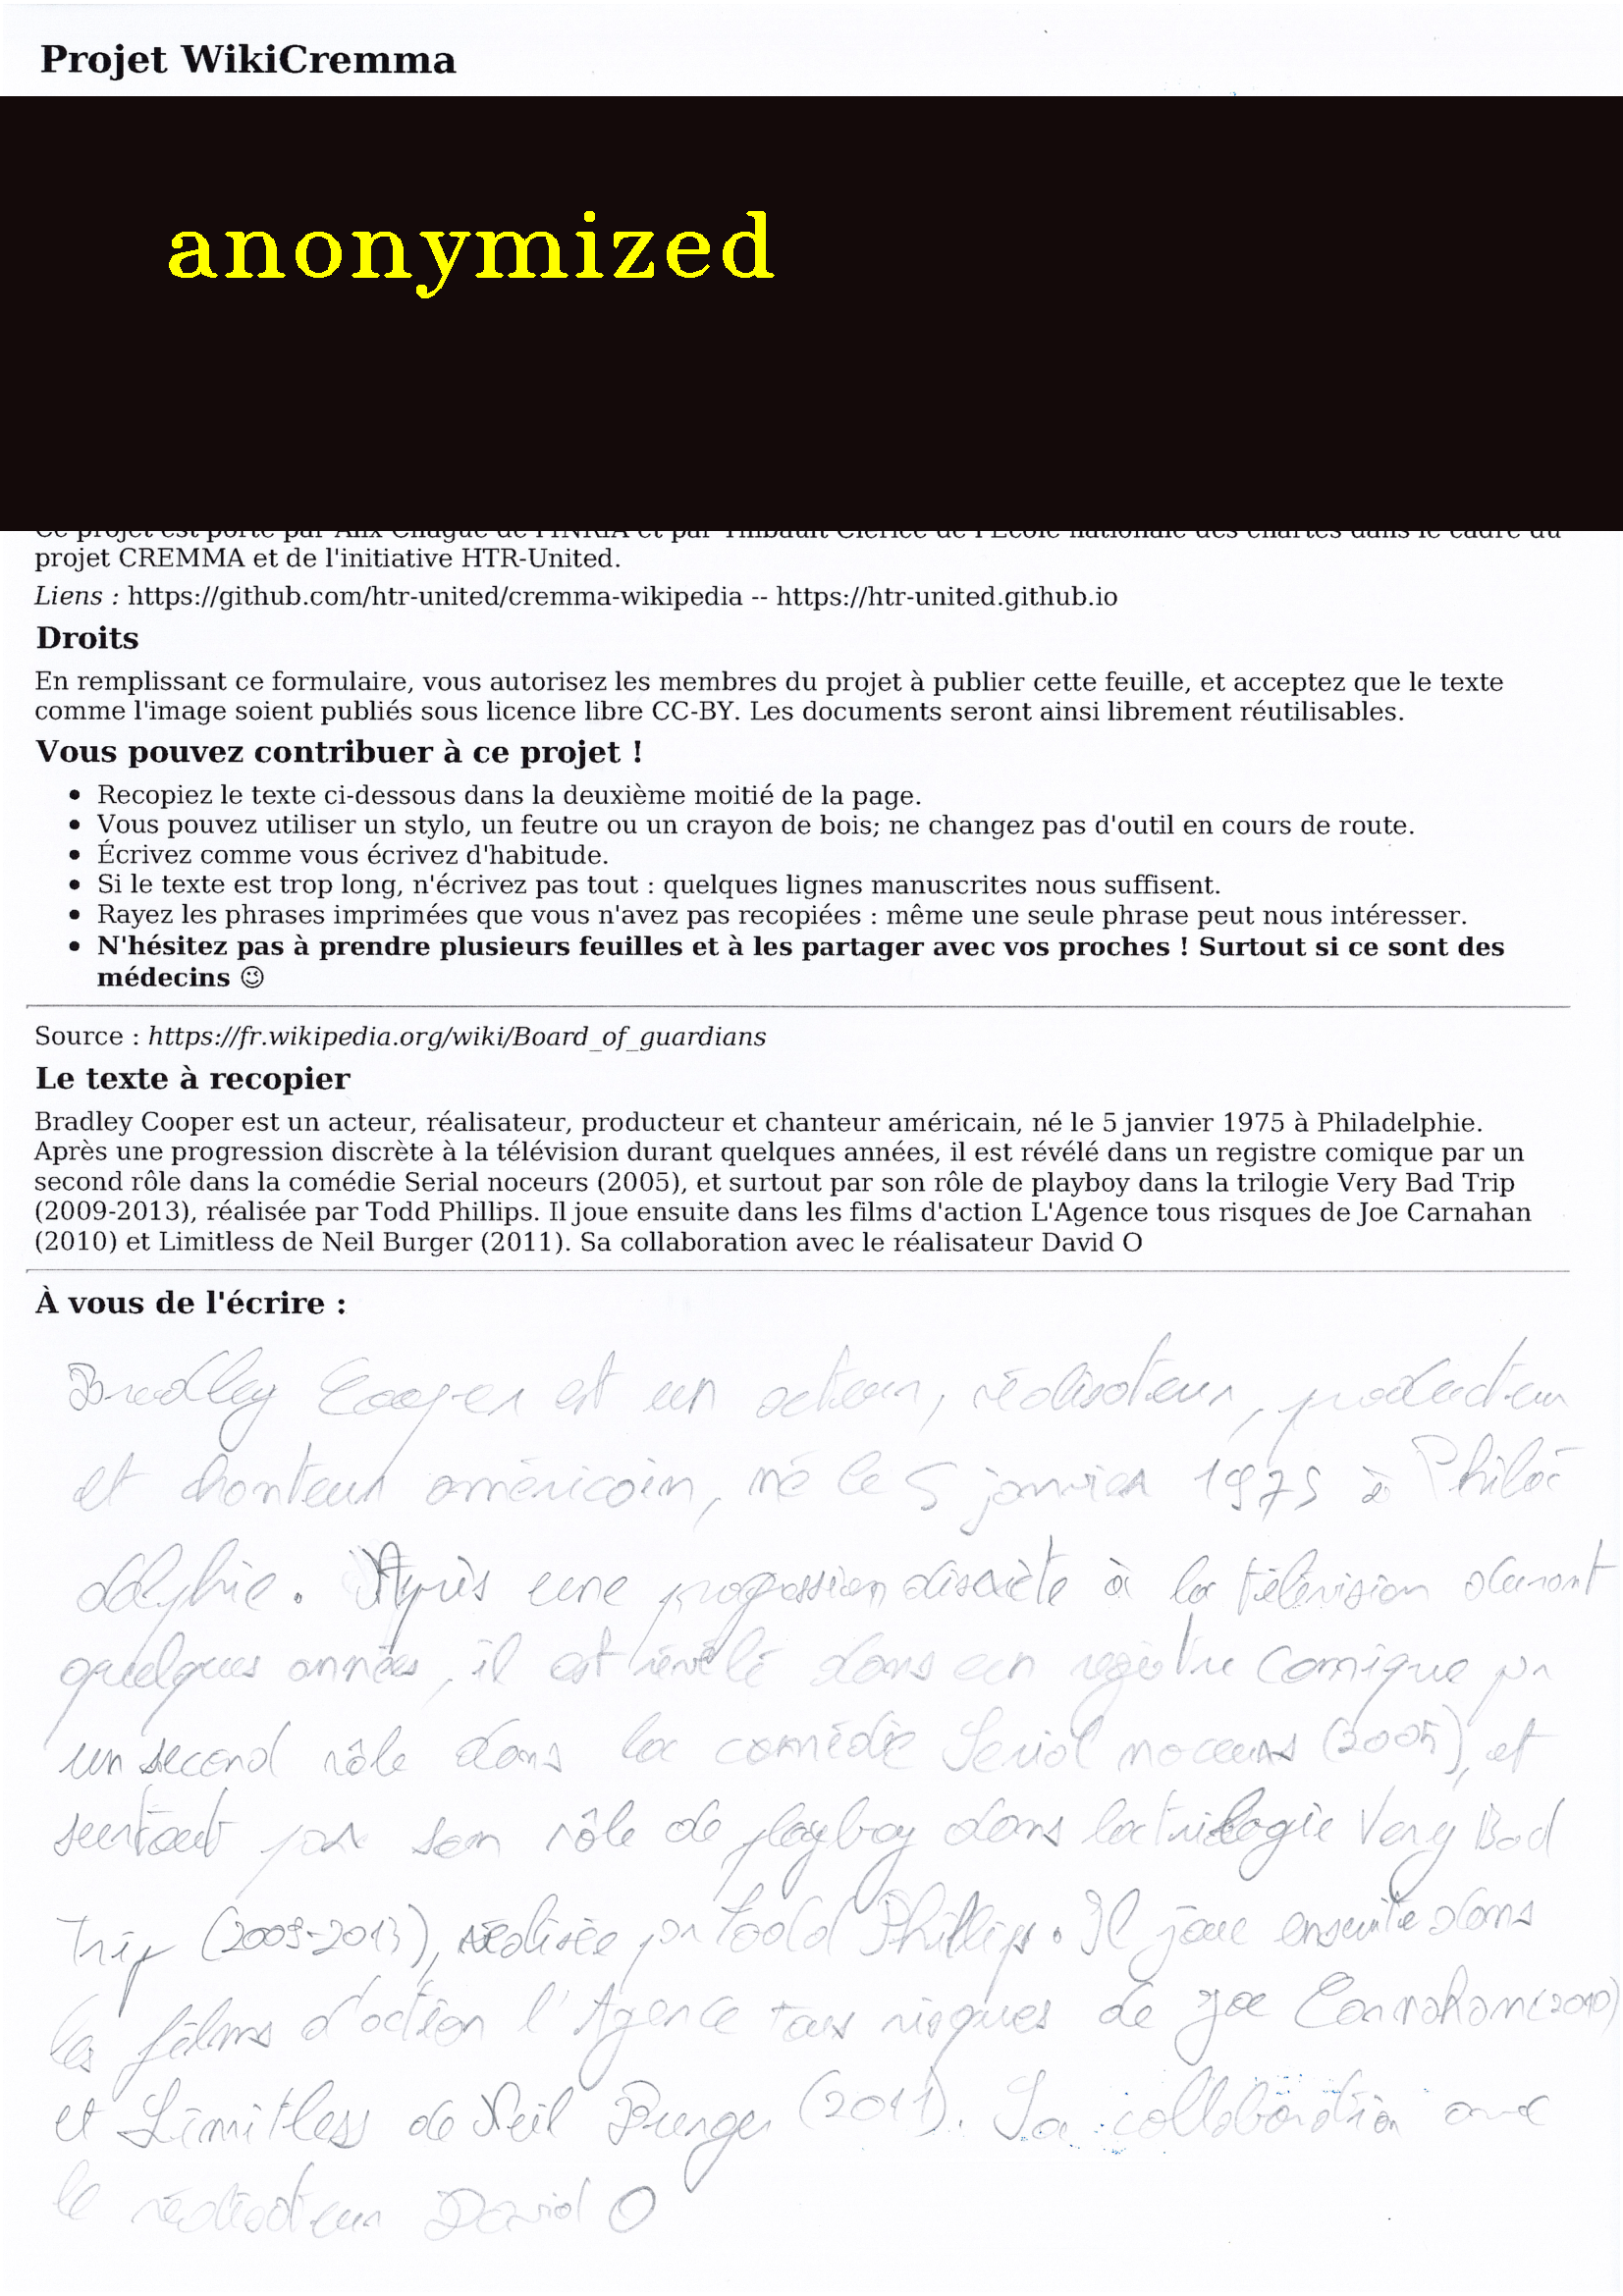 Projet WikiCremma
anonymized
Ce projet est porté par Alix Chagué de l'INRIA et par Thibault Clérice de l'École nationale des chartes dans le cadre du
projet CREMMA et de l'initiative HTR-United.
Liens : https://github.com/htr-united/cremma-wikipedia -- https://htr-united.github.io
Droits
En remplissant ce formulaire, vous autorisez les membres du projet à publier cette feuille, et acceptez que le texte
comme l'image soient publiés sous licence libre CC-BY. Les documents seront ainsi librement réutilisables.
Vous pouvez contribuer à ce projet !
• Recopiez le texte ci-dessous dans la deuxième moitié de la page.
• Vous pouvez utiliser un stylo, un feutre ou un crayon de bois; ne changez pas d'outil en cours de route.
• Écrivez comme vous écrivez d'habitude.
• Si le texte est trop long, n'écrivez pas tout : quelques lignes manuscrites nous suffisent.
• Rayez les phrases imprimées que vous n'avez pas recopiées : même une seule phrase peut nous intéresser.
• N'hésitez pas à prendre plusieurs feuilles et à les partager avec vos proches ! Surtout si ce sont des
médecins 😉
Source : https://fr.wikipedia.org/wiki/Board_of_guardians
Le texte à recopier
Bradley Cooper est un acteur, réalisateur, producteur et chanteur américain, né le 5 janvier 1975 à Philadelphie.
Après une progression discrète à la télévision durant quelques années, il est révélé dans un registre comique par un
second rôle dans la comédie Serial noceurs (2005), et surtout par son rôle de playboy dans la trilogie Very Bad Trip
(2009-2013), réalisée par Todd Phillips. Il joue ensuite dans les films d'action L'Agence tous risques de Joe Carnahan
(2010) et Limitless de Neil Burger (2011). Sa collaboration avec le réalisateur David O
À vous de l'écrire :
Bradley Cooper est un acteur, réalisateur, producteur
et chanteur américain, né le 5 janvier 1975 à Phila-
delphie. Après une progression discrète à la télévision durant
quelques années, il est révélé dans un registre comique par
un second rôle dans la comédie Serial noceurs (2005), et
surtout par son rôle de playboy dans la trilogie Very Bad
Trip (2009-2013), réalisée par Todd Phillips. Il joue ensuite dans
les films d'action l'Agence tous risques de Joe Carnahan (2010)
et Limitless de Neil Burger (2011). Sa collaboration avec
le réalisateur David O